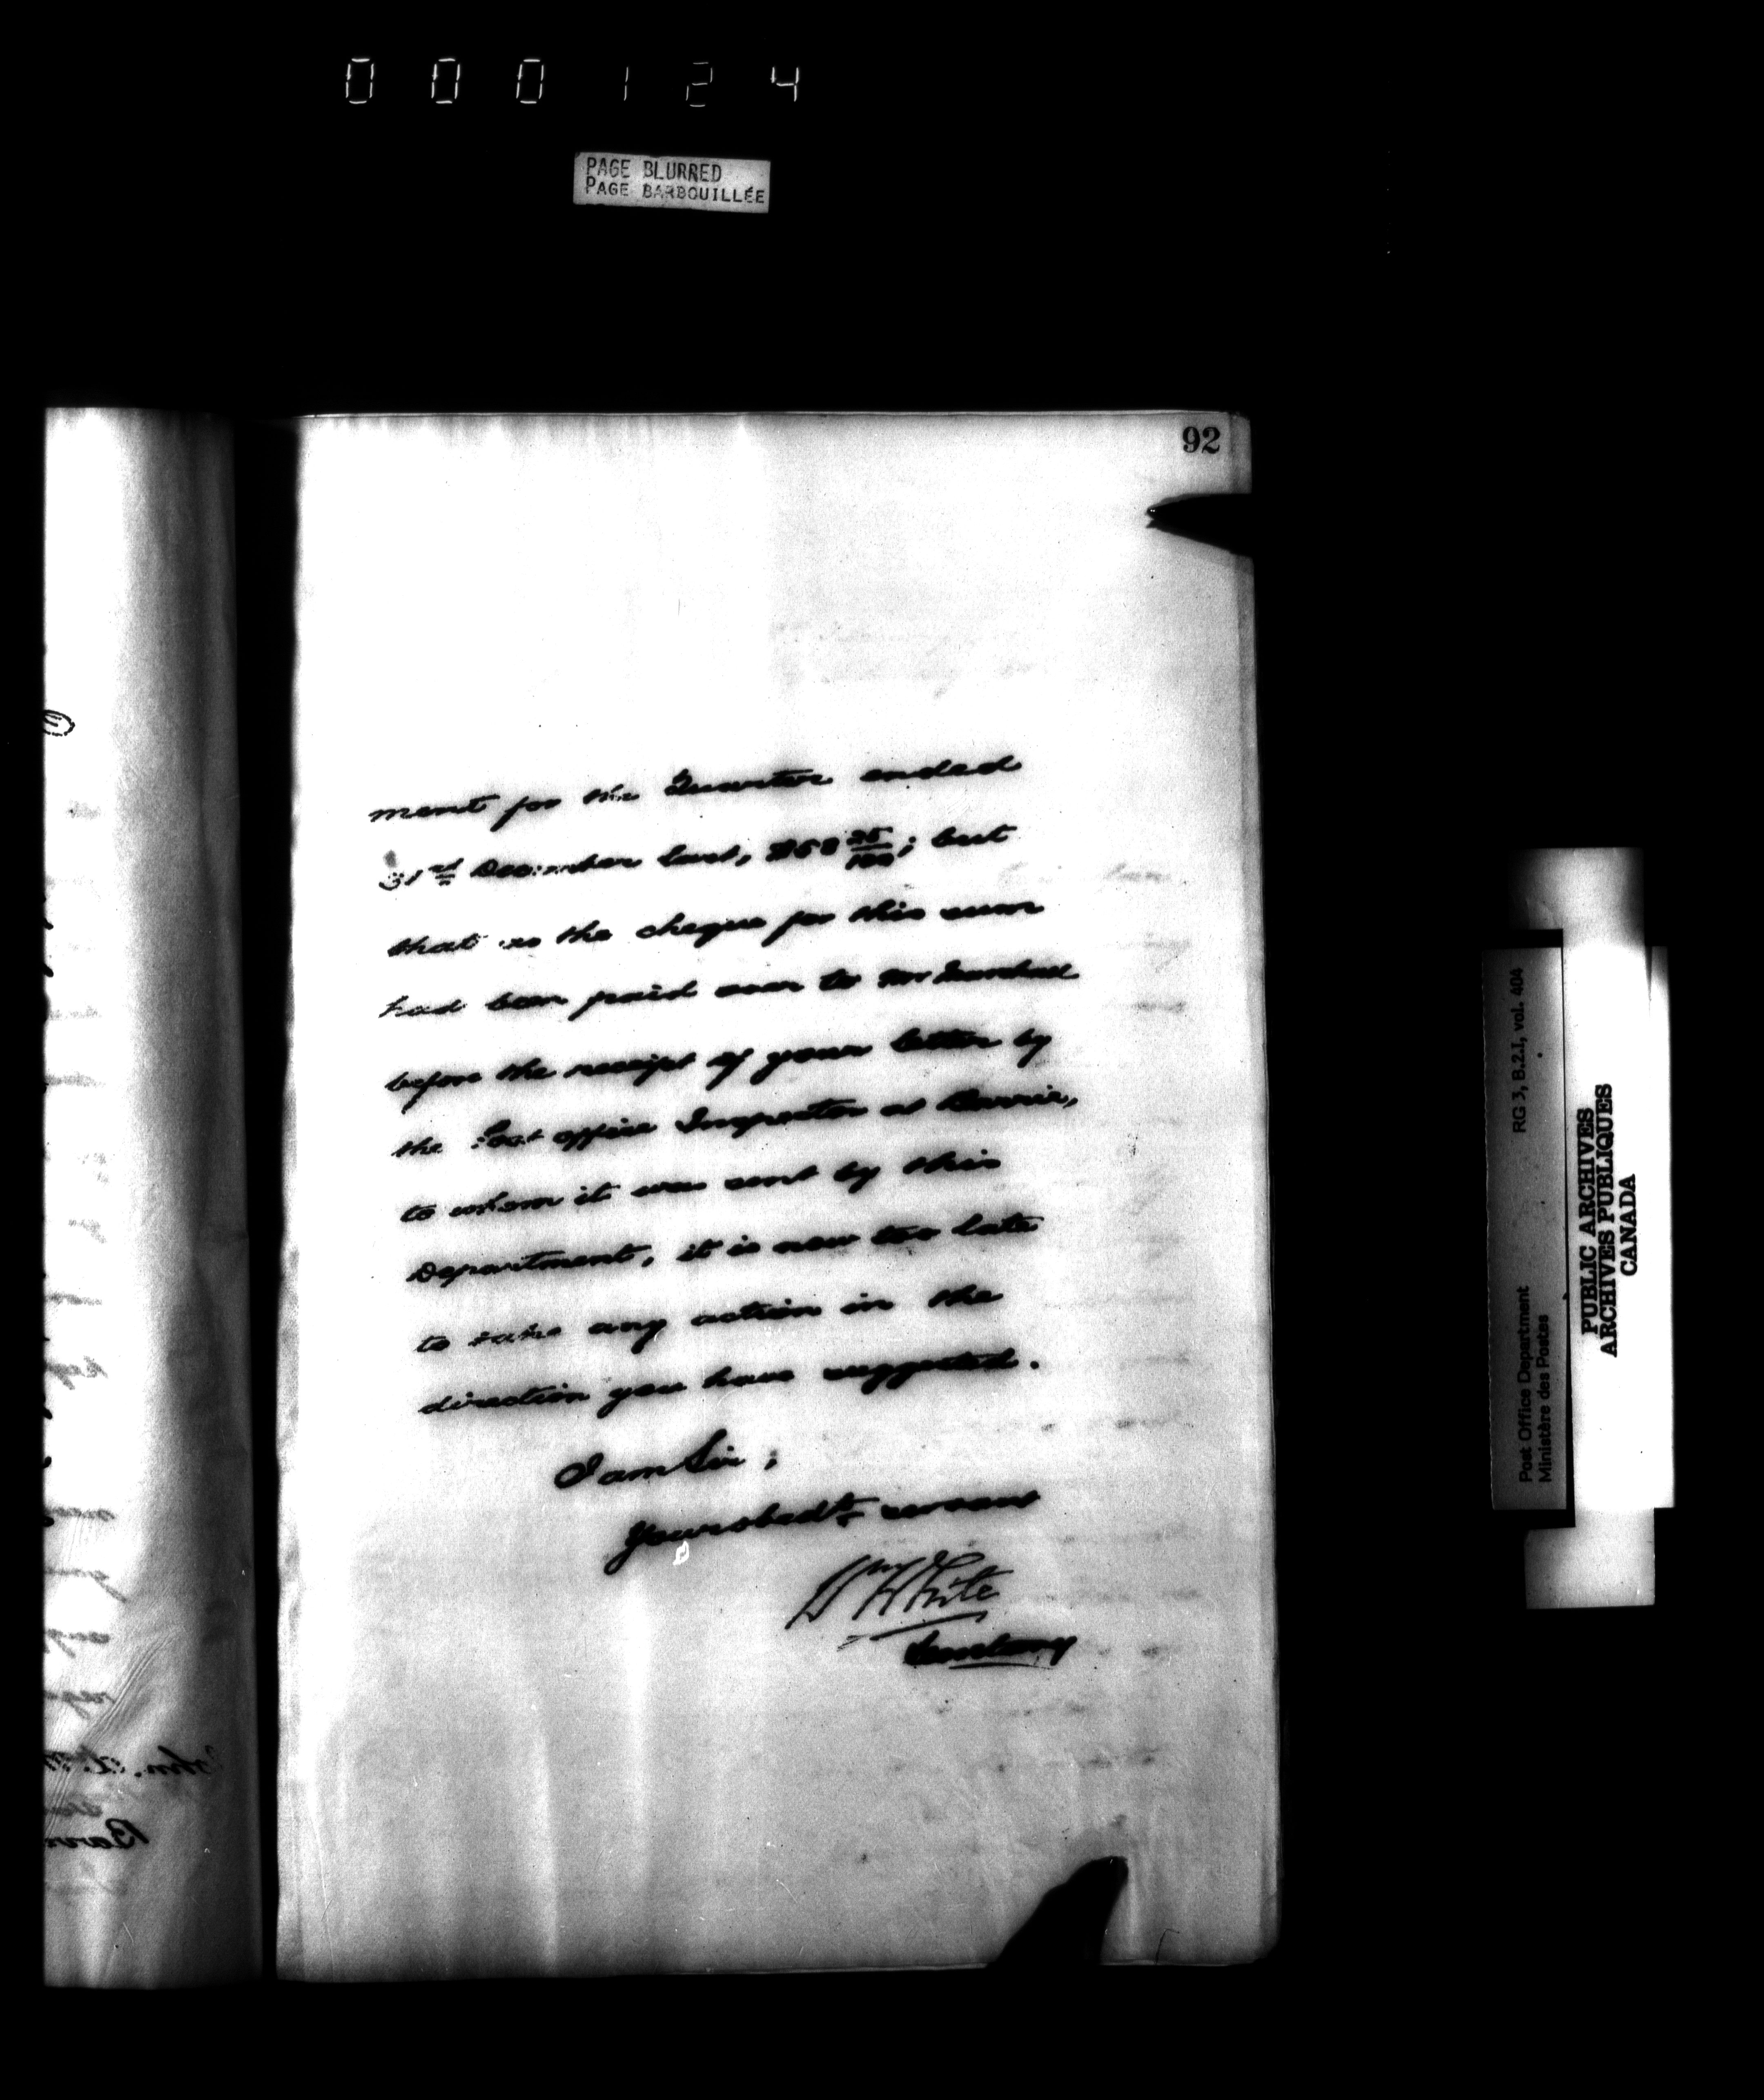 000124
PAGE BLURRED
PAGE BARBOUILLÉE
92
ment for the Quarter ended
31st December last, 25/100; but
that as the cheque for this sum
had been paid over to Mr
before the receipt of your letter by
the Post Office Inspector at Barrie,
to whom it was sent by this
Department, it is now too late
to take any action in the
direction you have suggested.
I am Sir,
Your obedt servant
Wm White
Secretary
RG 3, B.2.I, vol. 404
Post Office Department
Ministère des Postes
PUBLIC ARCHIVES
ARCHIVES PUBLIQUES
CANADA